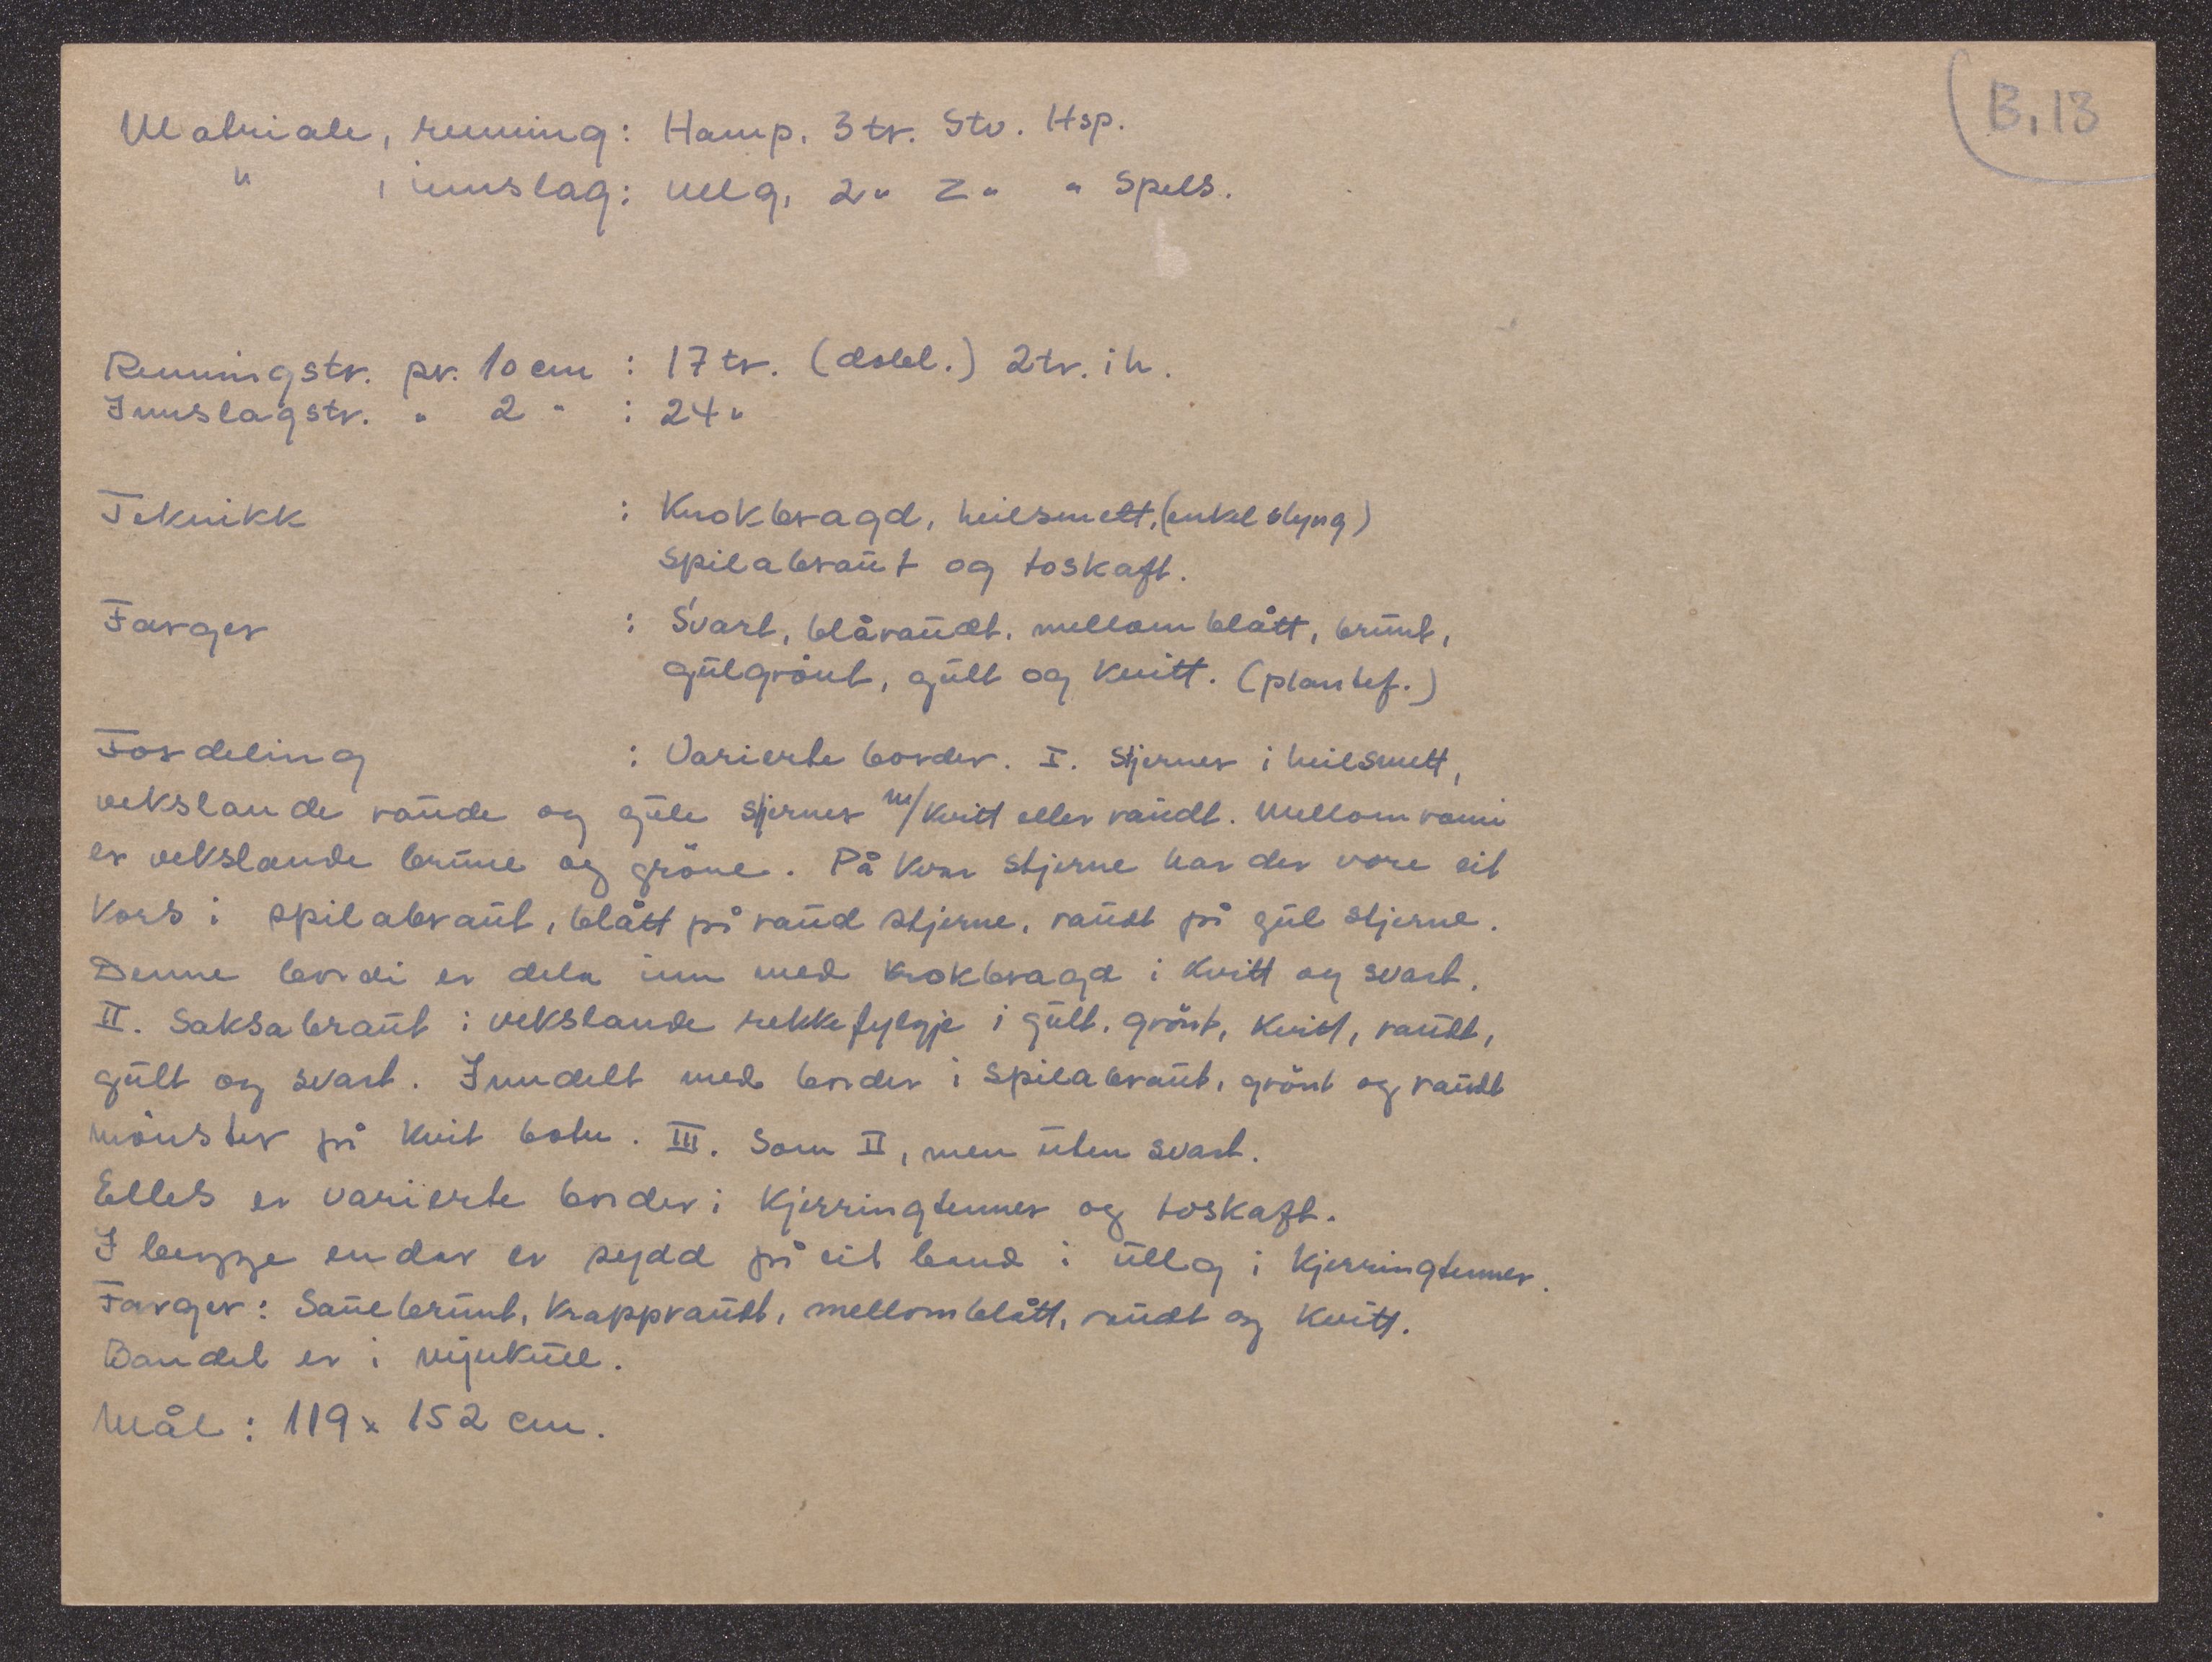 B, 13
Matriale, renning: Hamp. 3 tr. Stv. Hsp.
" , innslag: ullg, 2 " Z " " Spels.
Renningstr. pr. 10 cm : 17 tr. (dobl.) 2 tr. i h.
Innslagstr. " 2 " : 24 "
Teknikk : Krokbragd, heilsmett, (enkel slyng)
spilabraut og toskaft.
Farger : Svart, blåraudt, mellomblått, brunt,
gulgrönt, gult og kvitt. (plantef.)
Fordeling : Varierte border. I. Stjerner i heilsmett,
vekslande raude og gule stjerner m/kvitt eller raudt. Mellomromi
er vekslande brune og gröne. På kvar stjerne har der vore eit
kors i spilabraut, blått på raud stjerne, raudt på gul stjerne.
Denne bordi er dela inn med krokbragd i kvitt og svart.
II. Saksabraut i vekslande rekkefylgje i gult, grönt, kvitt, raudt,
gult og svart. Inndelt med border i spilabraut, grönt og raudt
mönster på kvit botn. III. Som II, men uten svart.
Elles er varierte border i kjerringtenner og toskaft.
I begge endar er sydd på eit band i ullg i kjerringtenner.
Farger: Sauebrunt, krappraudt, mellomblått, raudt og kvitt.
Bandet er i mjukull.
Mål : 119 x 152 cm.